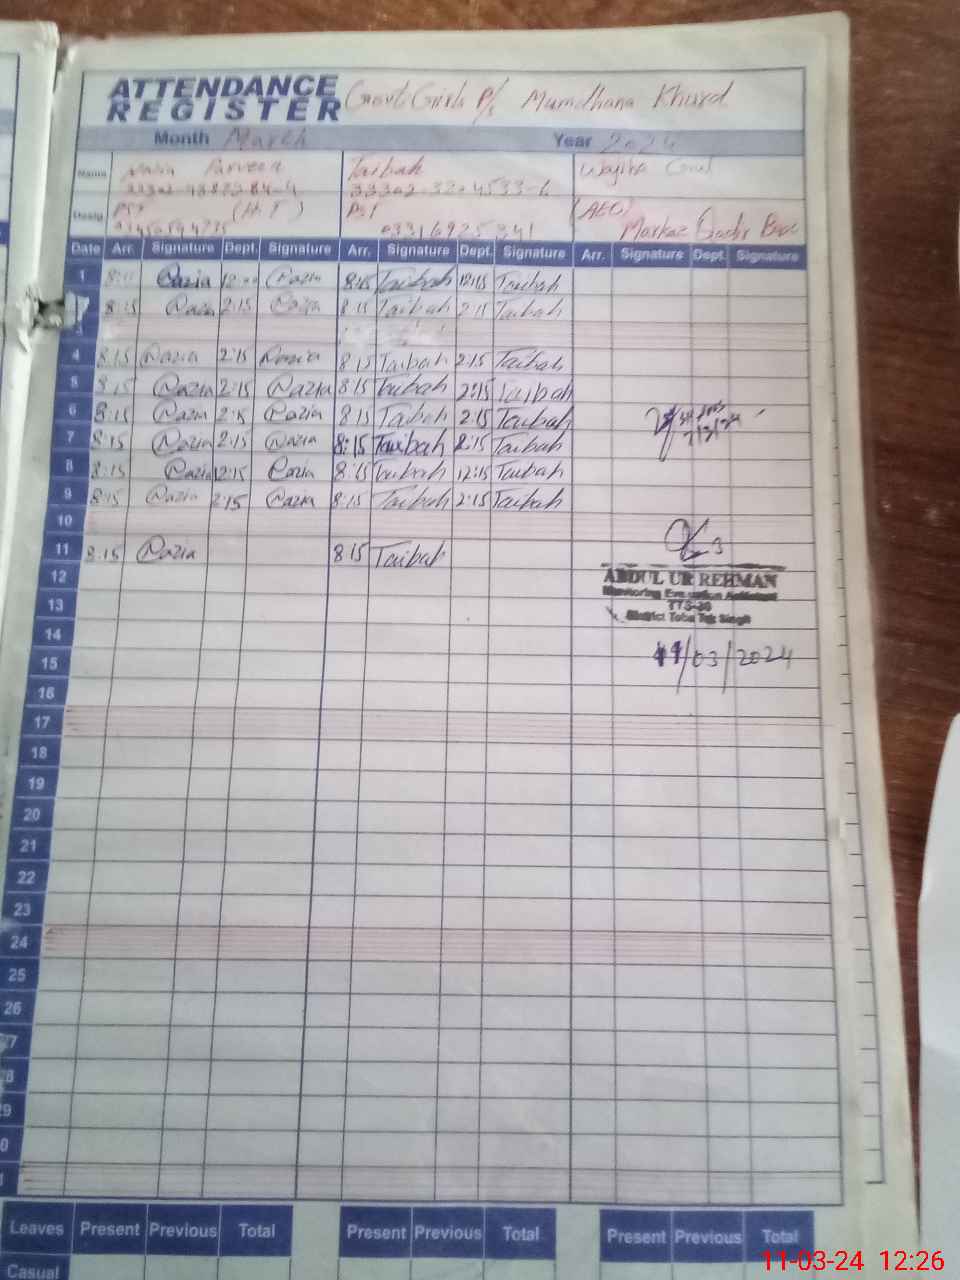 ATTENDANCE REGISTER Govt Girls P/s Mumdhana Khurd
Month March Year 2024
Name Parveen Taibah Wajiha Gul
33302-3204533-6
Desig. PST (H.T) PST (AEO)
03316925341 Markaz
Date Arr. Signature Dept. Signature Arr. Signature Dept. Signature Arr. Signature Dept. Signature
1 8:15 Taibah 12:15 Taibah
8:15 2:15 8:15 Taibah 2:15 Taibah
4 8:15 2:15 8:15 Taibah 2:15 Taibah
5 8:15 Qazia 2:15 Qazia 8:15 Taibah 2:15 Taibah
6 8:15 2:15 8:15 Taibah 2:15 Taibah
7 8:15 Qazia 2:15 Qazia 8:15 Taibah 2:15 Taibah
7/3/24
8 8:15 12:15 8:15 Taibah 12:15 Taibah
9 8:15 Qazia 2:15 Qazia 8:15 Taibah 2:15 Taibah
10
11 8:15 Qazia 8:15 Taibah
12
ABDUL UR REHMAN
Monitoring Evaluation Assistant
TTS-36
District Toba Tek Singh
13
14
15
11/03/2024
16
17
18
19
20
21
22
23
24
25
26
Leaves Present Previous Total Present Previous Total Present Previous Total
Casual
11-03-24 12:26